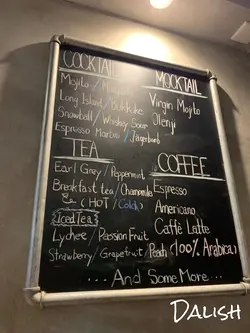 COCKTAIL
Mojito /
Long Island /
Snowball / Whiskey Sour
Espresso Martini / Jägerbomb
MOCKTAIL
Virgin Mojito
TEA
Earl Grey / Peppermint
Breakfast tea / Chamomile
(HOT / Cold)
Iced Tea
Lychee / Passion Fruit
Strawberry / Grapefruit / Peach
COFFEE
Espresso
Americano
Caffè Latte
(100% Arabica)
... And Some More ...
DALISH